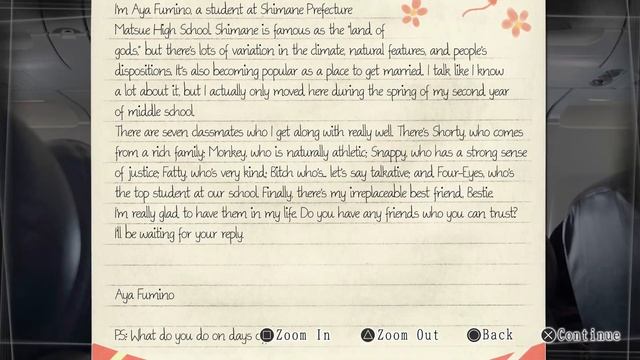 I'm Aya Fumino, a student at Shimane Prefecture
Matsue High School. Shimane is famous as the "land of
gods," but there's lots of variation in the climate, natural features, and people's
dispositions. It's also becoming popular as a place to get married. I talk like I know
a lot about it, but I actually only moved here during the spring of my second year
of middle school.
There are seven classmates who I get along with really well. There's Shorty, who comes
from a rich family; Monkey, who is naturally athletic; Snappy, who has a strong sense
of justice; Fatty, who's very kind; Bitch who's... let's say talkative; and Four-Eyes, who's
the top student at our school. Finally, there's my irreplaceable best friend, Bestie.
I'm really glad to have them in my life. Do you have any friends who you can trust?
I'll be waiting for your reply.
Aya Fumino
P.S.: What do you do on days
Zoom In Zoom Out Back Continue